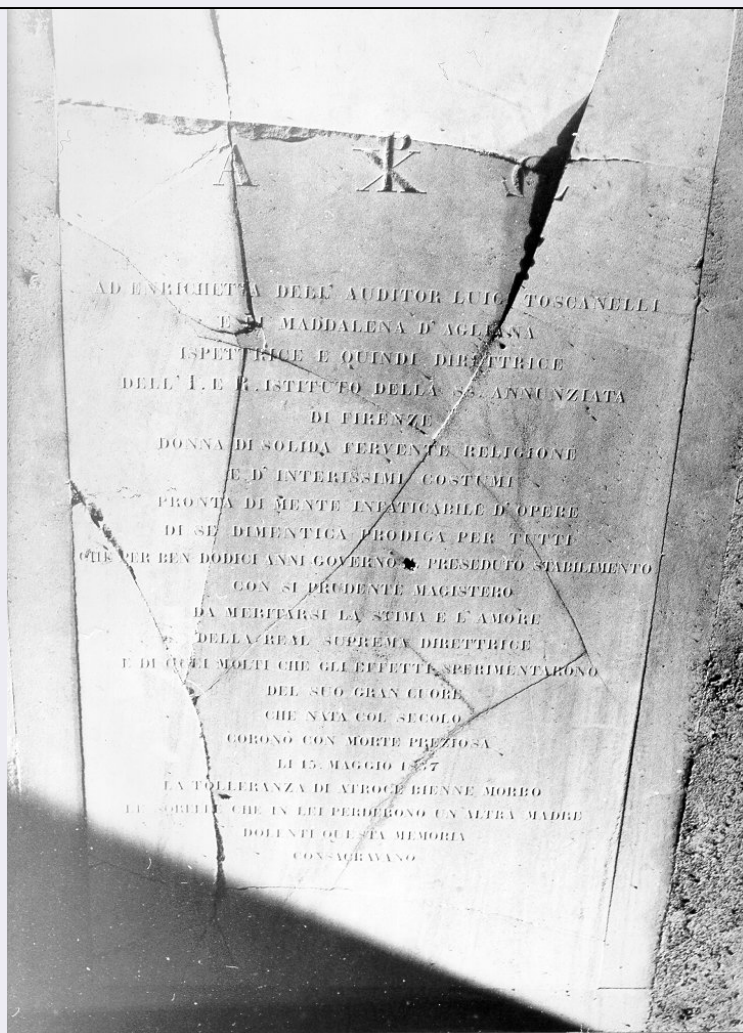 A ☧ Ω
AD ENRICHETTA DELL' AUDITOR LUIGI TOSCANELLI
E DI MADDALENA D'AGLIANA
ISPETTRICE E QUINDI DIRETTRICE
DELL' I. E R. ISTITUTO DELLA SS. ANNUNZIATA
DI FIRENZE
DONNA DI SOLIDA FERVENTE RELIGIONE
E D' INTERISSIMI COSTUMI
PRONTA DI MENTE INFATICABILE D' OPERE
DI SE DIMENTICA PRODIGA PER TUTTI
CHE PER BEN DODICI ANNI GOVERNO IL PRESEDUTO STABILIMENTO
CON SI PRUDENTE MAGISTERO
DA MERITARSI LA STIMA E L' AMORE
DELLA REAL SUPREMA DIRETTRICE
E DI QUEI MOLTI CHE GLI EFFETTI SPERIMENTARONO
DEL SUO GRAN CUORE
CHE NATA COL SECOLO
CORONÒ CON MORTE PREZIOSA
LI 15. MAGGIO
LA TOLLERANZA DI ATROCE BIENNE MORBO
LE SORELLE CHE IN LEI PERDERONO UN' ALTRA MADRE
DOLENTI QUESTA MEMORIA
CONSAGRAVANO